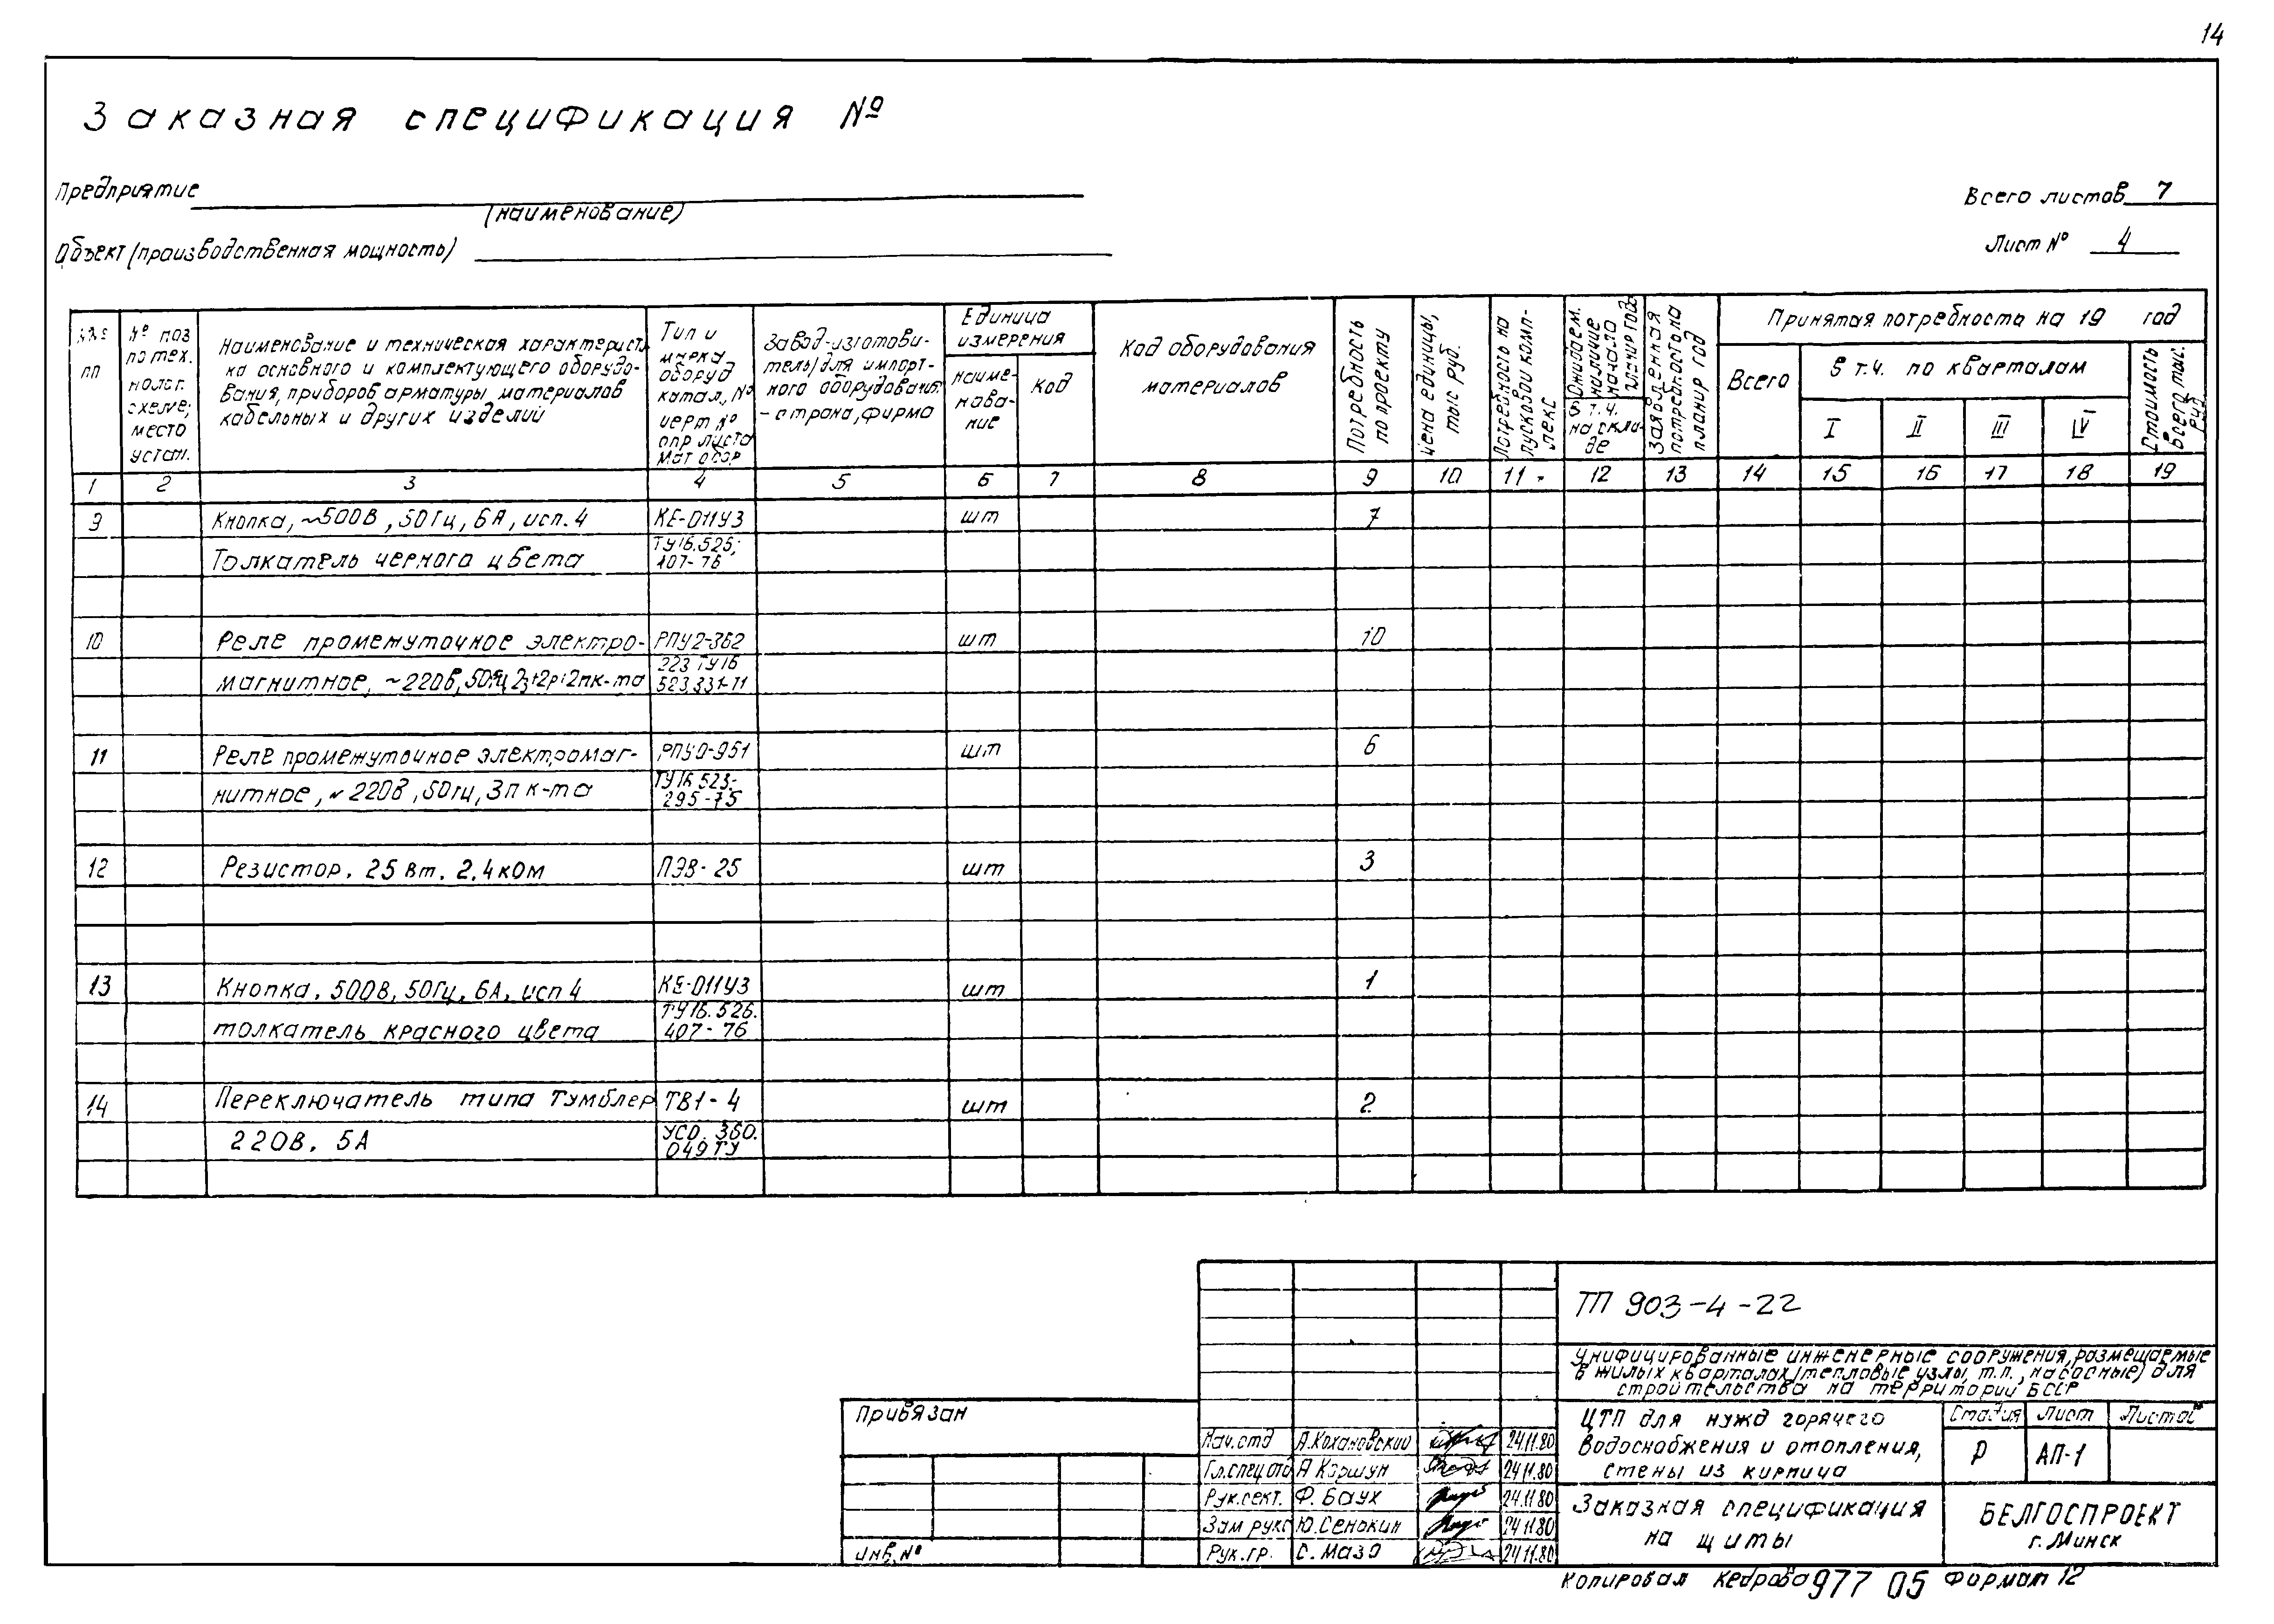 14
Заказная спецификация №
Предприятие
(наименование)
Всего листов 7
Объект (производственная мощность)
Лист № 4
пп
№ поз по тех. схеме; место устан.
Наименование и техническая характерист.
ка основного и комплектующего оборудо-
вания, приборов арматуры, материалов
кабельных и других изделий
Тип и
марка
оборуд
катал., №
черт №
опр листа
мат обор
Завод-изготови-
тель/для импорт-
ного оборудования
- страна, фирма
Единица
измерения
наиме-
нова-
ние
код
Код оборудования
материалов
Потребность
по проекту
Цена единицы,
тыс руб.
Потребность на
пусковой комп-
лекс
Ожидаем.
наличие
начала
планир года
в т.ч.
на скла-
де
Заявленная
потребность на
планир год
Принятая потребность на 19 год
Всего
В т.ч. по кварталам
I II III IV
Стоимость
всего, тыс.
руб.
1 2 3 4 5 6 7 8 9 10 11 12 13 14 15 16 17 18 19
9 Кнопка, ~500В, 50Гц, 6А, исп. 4 КЕ-011У3 шт 7
Толкатель черного цвета ТУ16.526; 407-76
10 Реле промежуточное электро- РПУ2-362 шт 10
магнитное, ~220в, 50гц 2з+2р+2пк-та 223 ТУ16 523.331-71
11 Реле промежуточное электромаг- РПУ0-951 шт 6
нитное, ~220в, 50гц, 3п к-та ТУ16 523- 295-75
12 Резистор. 25 вт. 2.4 ком ПЭВ-25 шт 3
13 Кнопка. 500в, 50Гц. 6А, исп 4 КЕ-011У3 шт 1
толкатель красного цвета ТУ16.526. 407-76
14 Переключатель типа Тумблер ТВ1-4 шт 2
220В. 5А УСО. 360. 049ТУ
ТП 903-4-22
Унифицированные инженерные сооружения, размещаемые
в жилых кварталах (тепловые узлы, т.п., насосные) для
строительства на территории БССР
Привязан
ЦТП для нужд горячего
водоснабжения и отопления,
стены из кирпича
Стадия Лист Листов
Р АП-1
Нач.отд А.Кохановский 24.11.80
Гл.спец отд А Коршун 24.11.80
Рук.сект. Ф. Баух 24.11.80
Зам рукс Ю.Сенокин 24.11.80
Рук.гр. С. Мазо 24.11.80
Заказная спецификация
на щиты
БЕЛГОСПРОЕКТ
г. Минск
инв. №
Копировал Кедрова 977 05 Формат 12